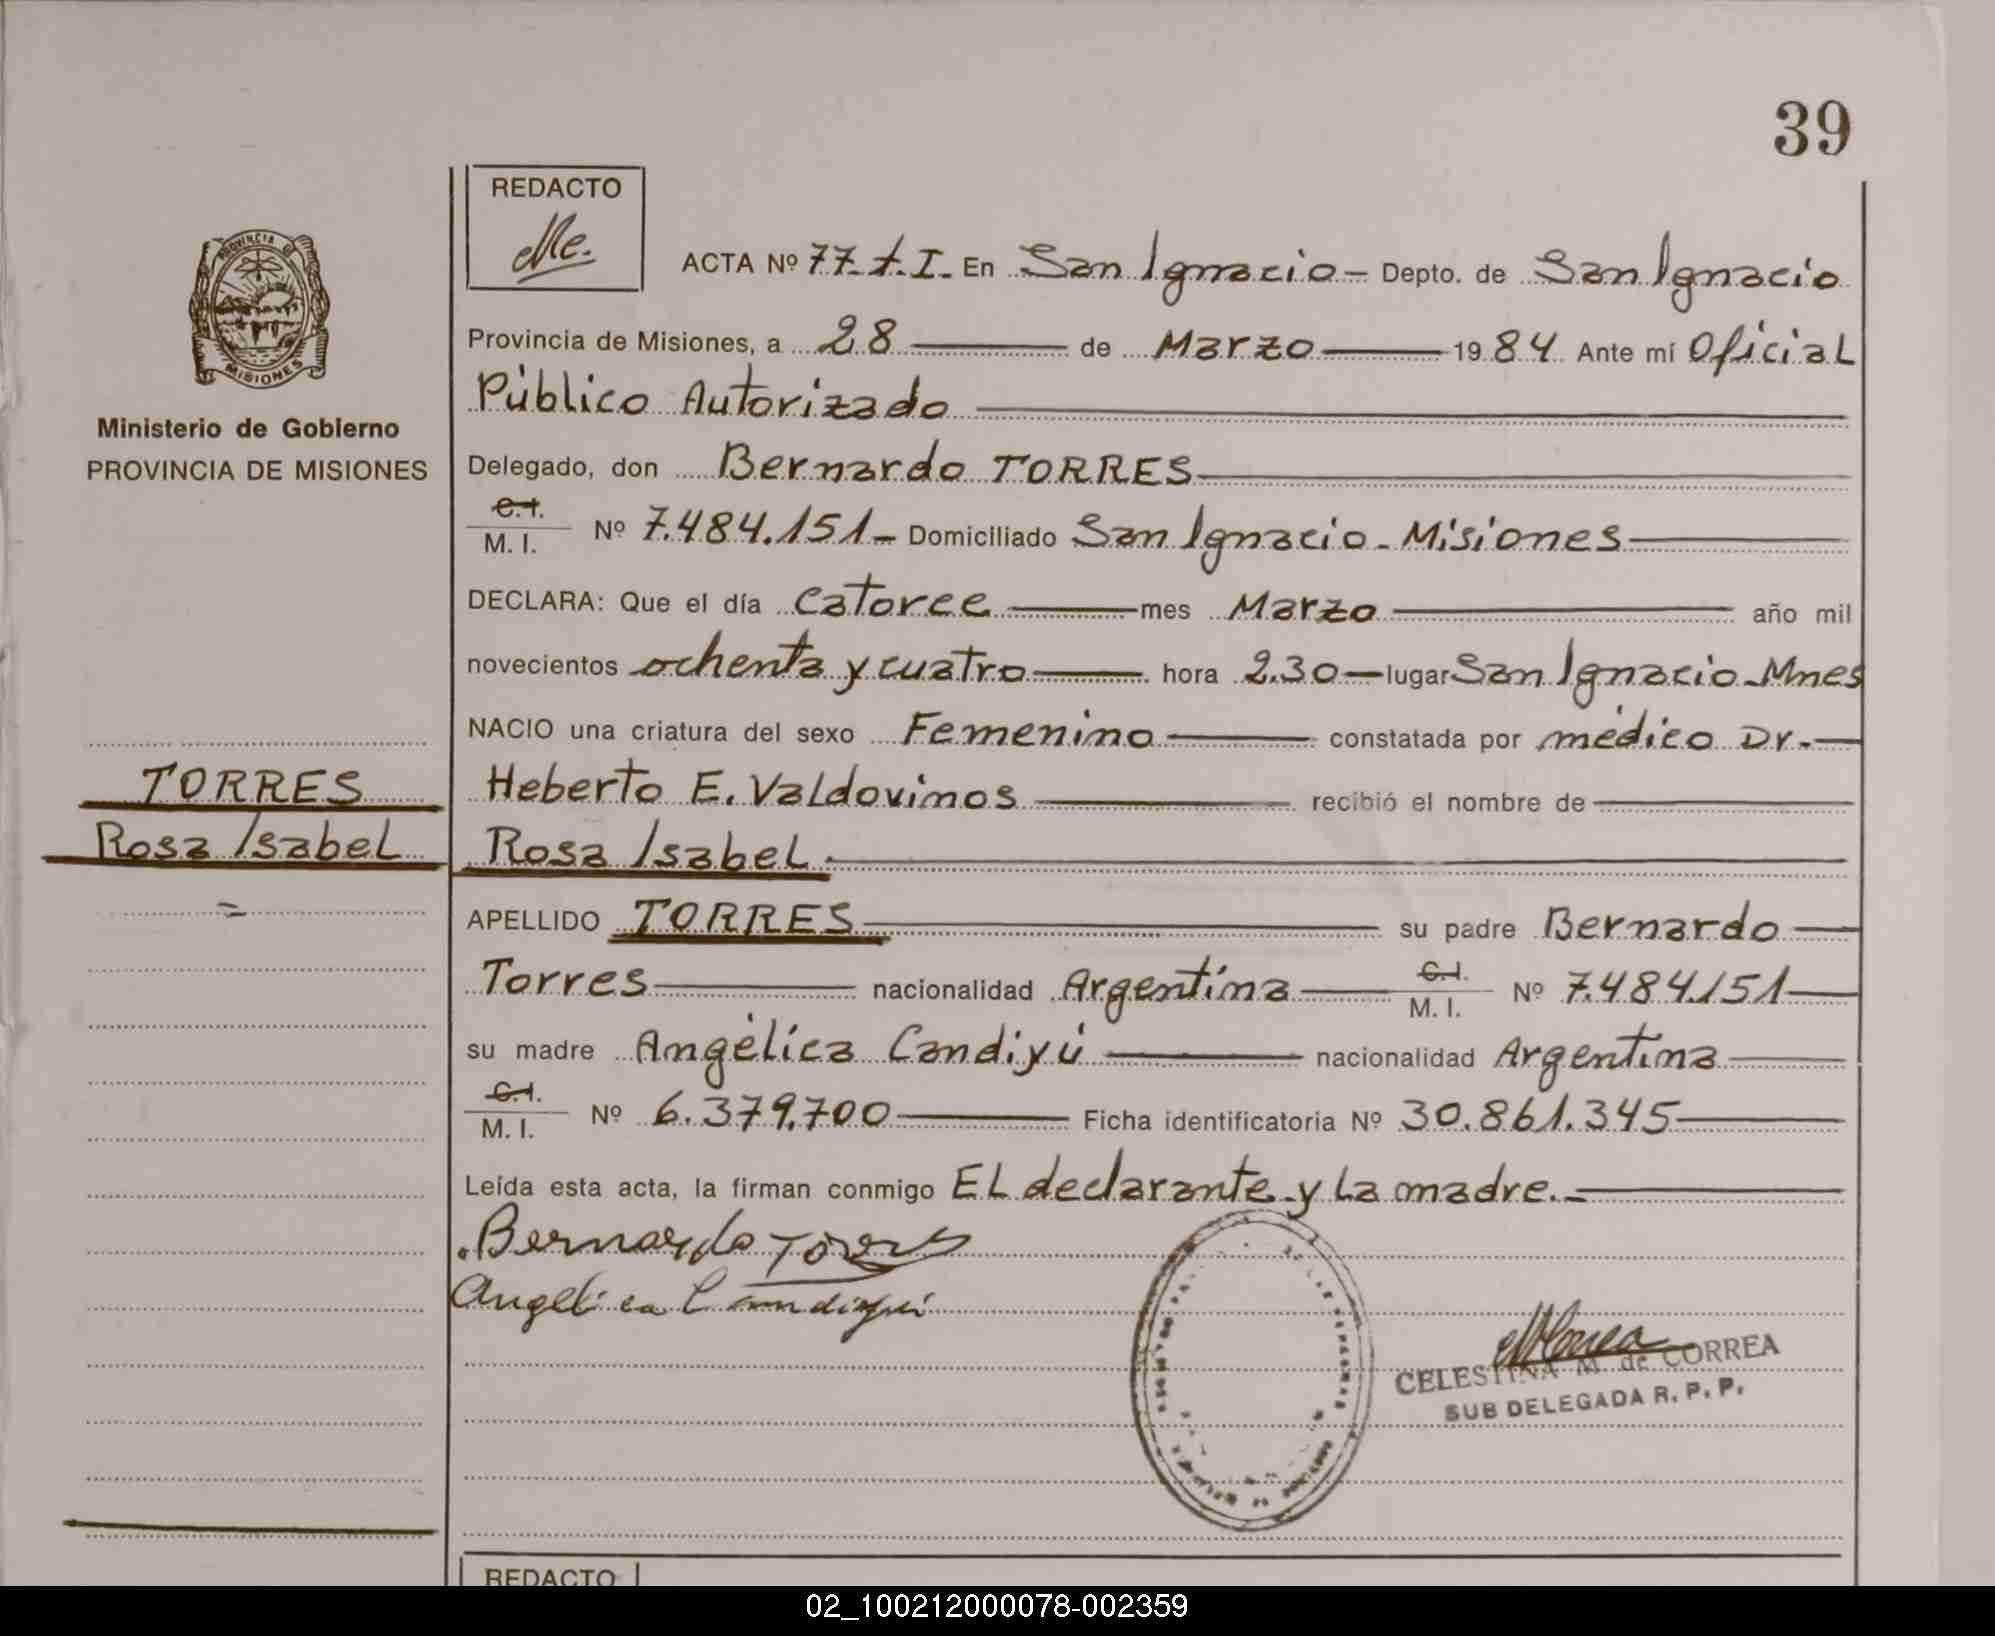 39
REDACTO
PROVINCIA D
MISIONES
ACTA Nº 77. t. I. En San Ignacio - Depto. de San Ignacio
Provincia de Misiones, a 28 de Marzo 1984 Ante mí Oficial
Público Autorizado
Ministerio de Gobierno
PROVINCIA DE MISIONES
Delegado, don Bernardo TORRES
C.I. M. I. Nº 7.484.151 - Domiciliado San Ignacio - Misiones
DECLARA: Que el día catorce mes Marzo año mil
novecientos ochenta y cuatro hora 2.30 - lugar San Ignacio - Mnes
NACIO una criatura del sexo Femenino constatada por médico Dr. -
TORRES
Heberto E. Valdovinos recibió el nombre de
Rosa Isabel
Rosa Isabel
APELLIDO TORRES su padre Bernardo
Torres nacionalidad Argentina C.I. M. I. Nº 7.484.151
su madre Angélica Candiyú nacionalidad Argentina
C.I. M. I. Nº 6.379.700 Ficha identificatoria Nº 30.861.345
Leída esta acta, la firman conmigo EL declarante y La madre. -
Bernardo Torres
Angelica Candiyú
CELESTINA M. de CORREA
SUB DELEGADA R. P. P.
REDACTO
02_100212000078-002359